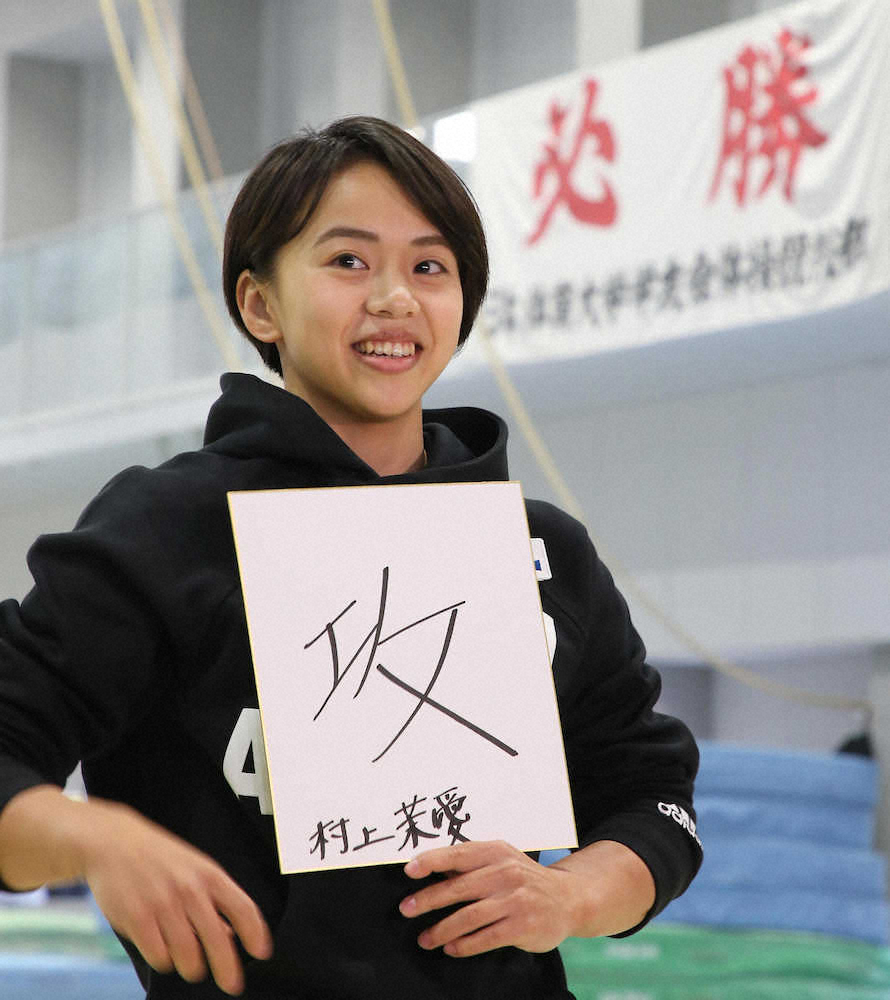 必勝
体育大学学友会体操競技部
攻
村上茉愛
4